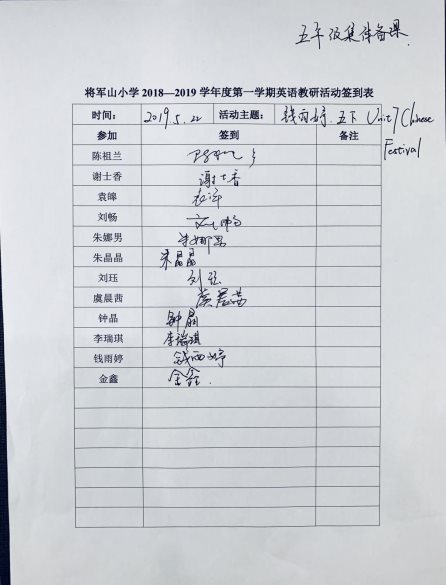 五年级集体备课
将军山小学 2018—2019 学年度第一学期英语教研活动签到表
时间： 2019.5.22 活动主题： 钱雨婷 五下 Unit7 Chinese
Festival
参加 签到 备注
陈祖兰
谢士香 谢士香
袁皞
刘畅
朱娜男 朱娜男
朱晶晶 朱晶晶
刘珏 刘珏
虞晨茜 虞晨茜
钟晶 钟晶
李瑞琪 李瑞琪
钱雨婷 钱雨婷
金鑫 金鑫